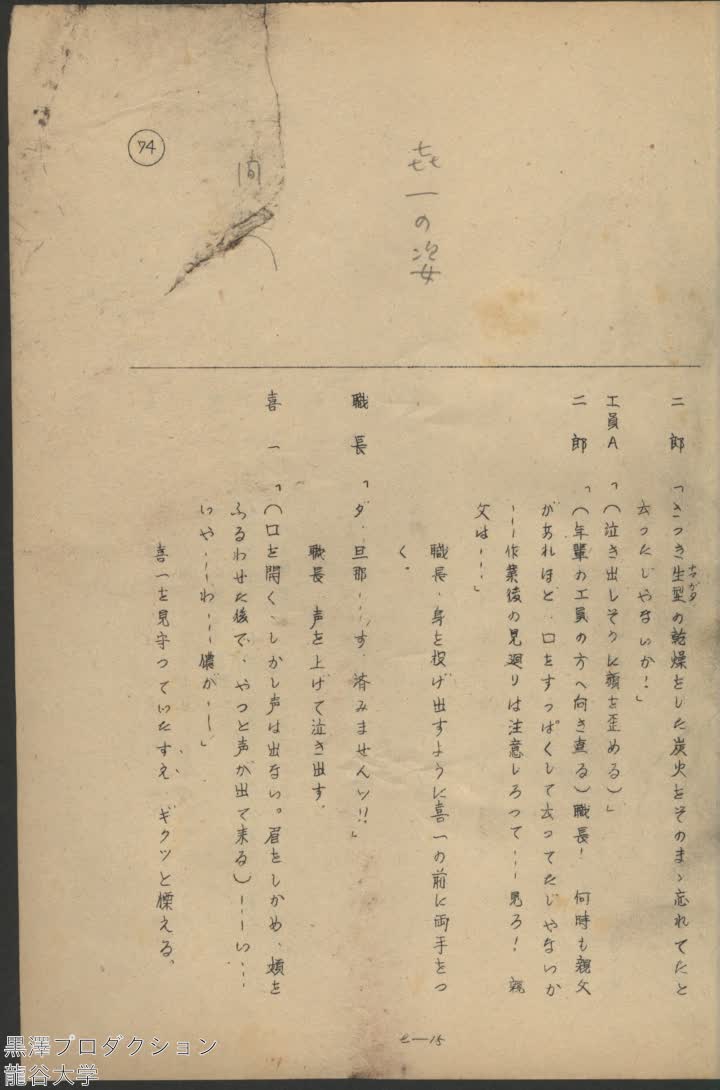 74
㐂一の姿
二郎「さつき生型の乾燥をした炭火をそのまゝ忘れてたと
ナマガタ
云つたじやないか！」
工員A「（泣き出しそうに顔を歪める）」
二郎「（年輩の工員の方へ向き直る）職長！　何時も親父
があれほど、口をすつぱくして云つてたじやないか
……作業後の見廻りは注意しろって……見ろ！　親
父は……」
職長、身を投げ出すように喜一の前に両手をつ
く。
職長「ダ、旦那……す、済みませんッ!!」
職長、声を上げて泣き出す。
喜一「（口を開く、しかし声は出ない。眉をしかめ、頬を
ふるわせた後で、やつと声が出て来る）……い……
いや……わ……儂が……」
喜一を見守つていたすえ、ギクッと慄える。
と—15
黒澤プロダクション
龍谷大学